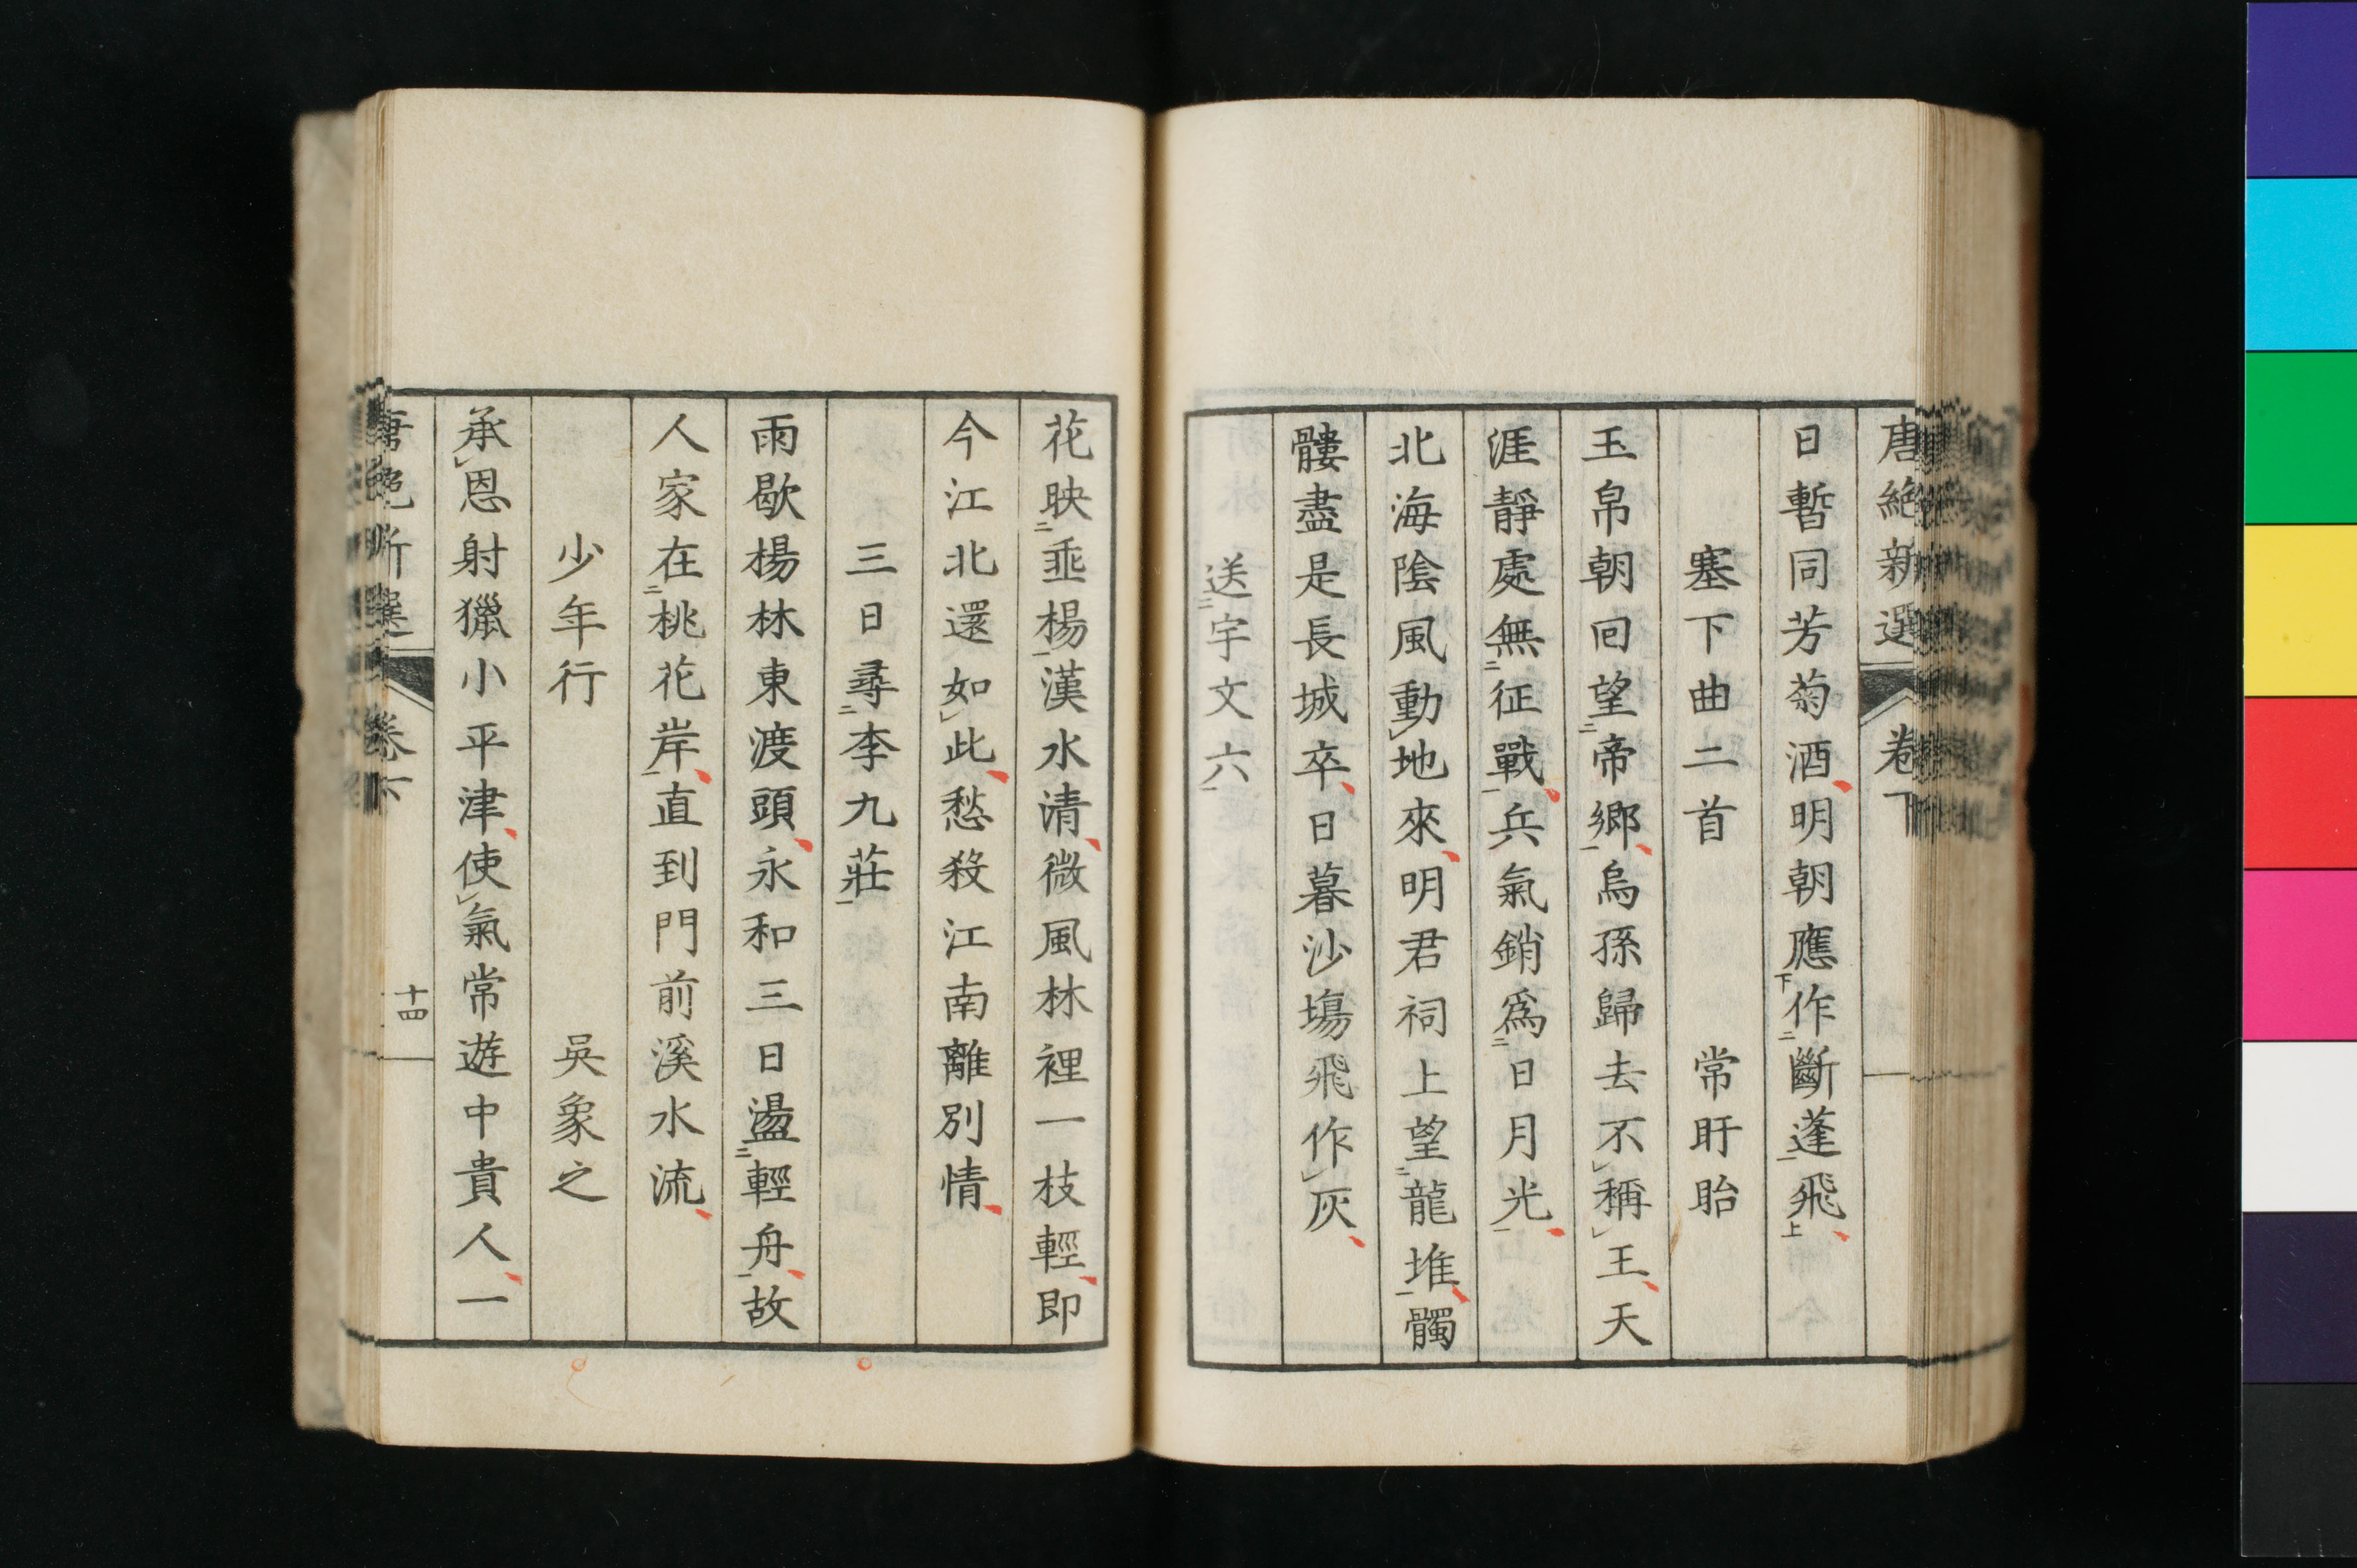 唐絶新選 卷下
日暫同芳菊酒明朝應下作二斷蓬一飛上
塞下曲二首 常盱眙
玉帛朝回望二帝鄉一烏孫歸去不レ稱レ王天
涯靜處無二征戰一兵氣銷爲二日月光一
北海陰風動レ地來明君祠上望二龍堆一髑
髏盡是長城卒日暮沙場飛作レ灰
送二宇文六一
花映二垂楊一漢水清微風林裡一枝輕即
今江北還如レ此愁殺江南離別情
三日尋二李九莊一
雨歇楊林東渡頭永和三日盪二輕舟一故
人家在二桃花岸一直到門前溪水流
少年行 吳象之
承レ恩射獵小平津使レ氣常遊中貴人一
唐絶新選 卷下 十四